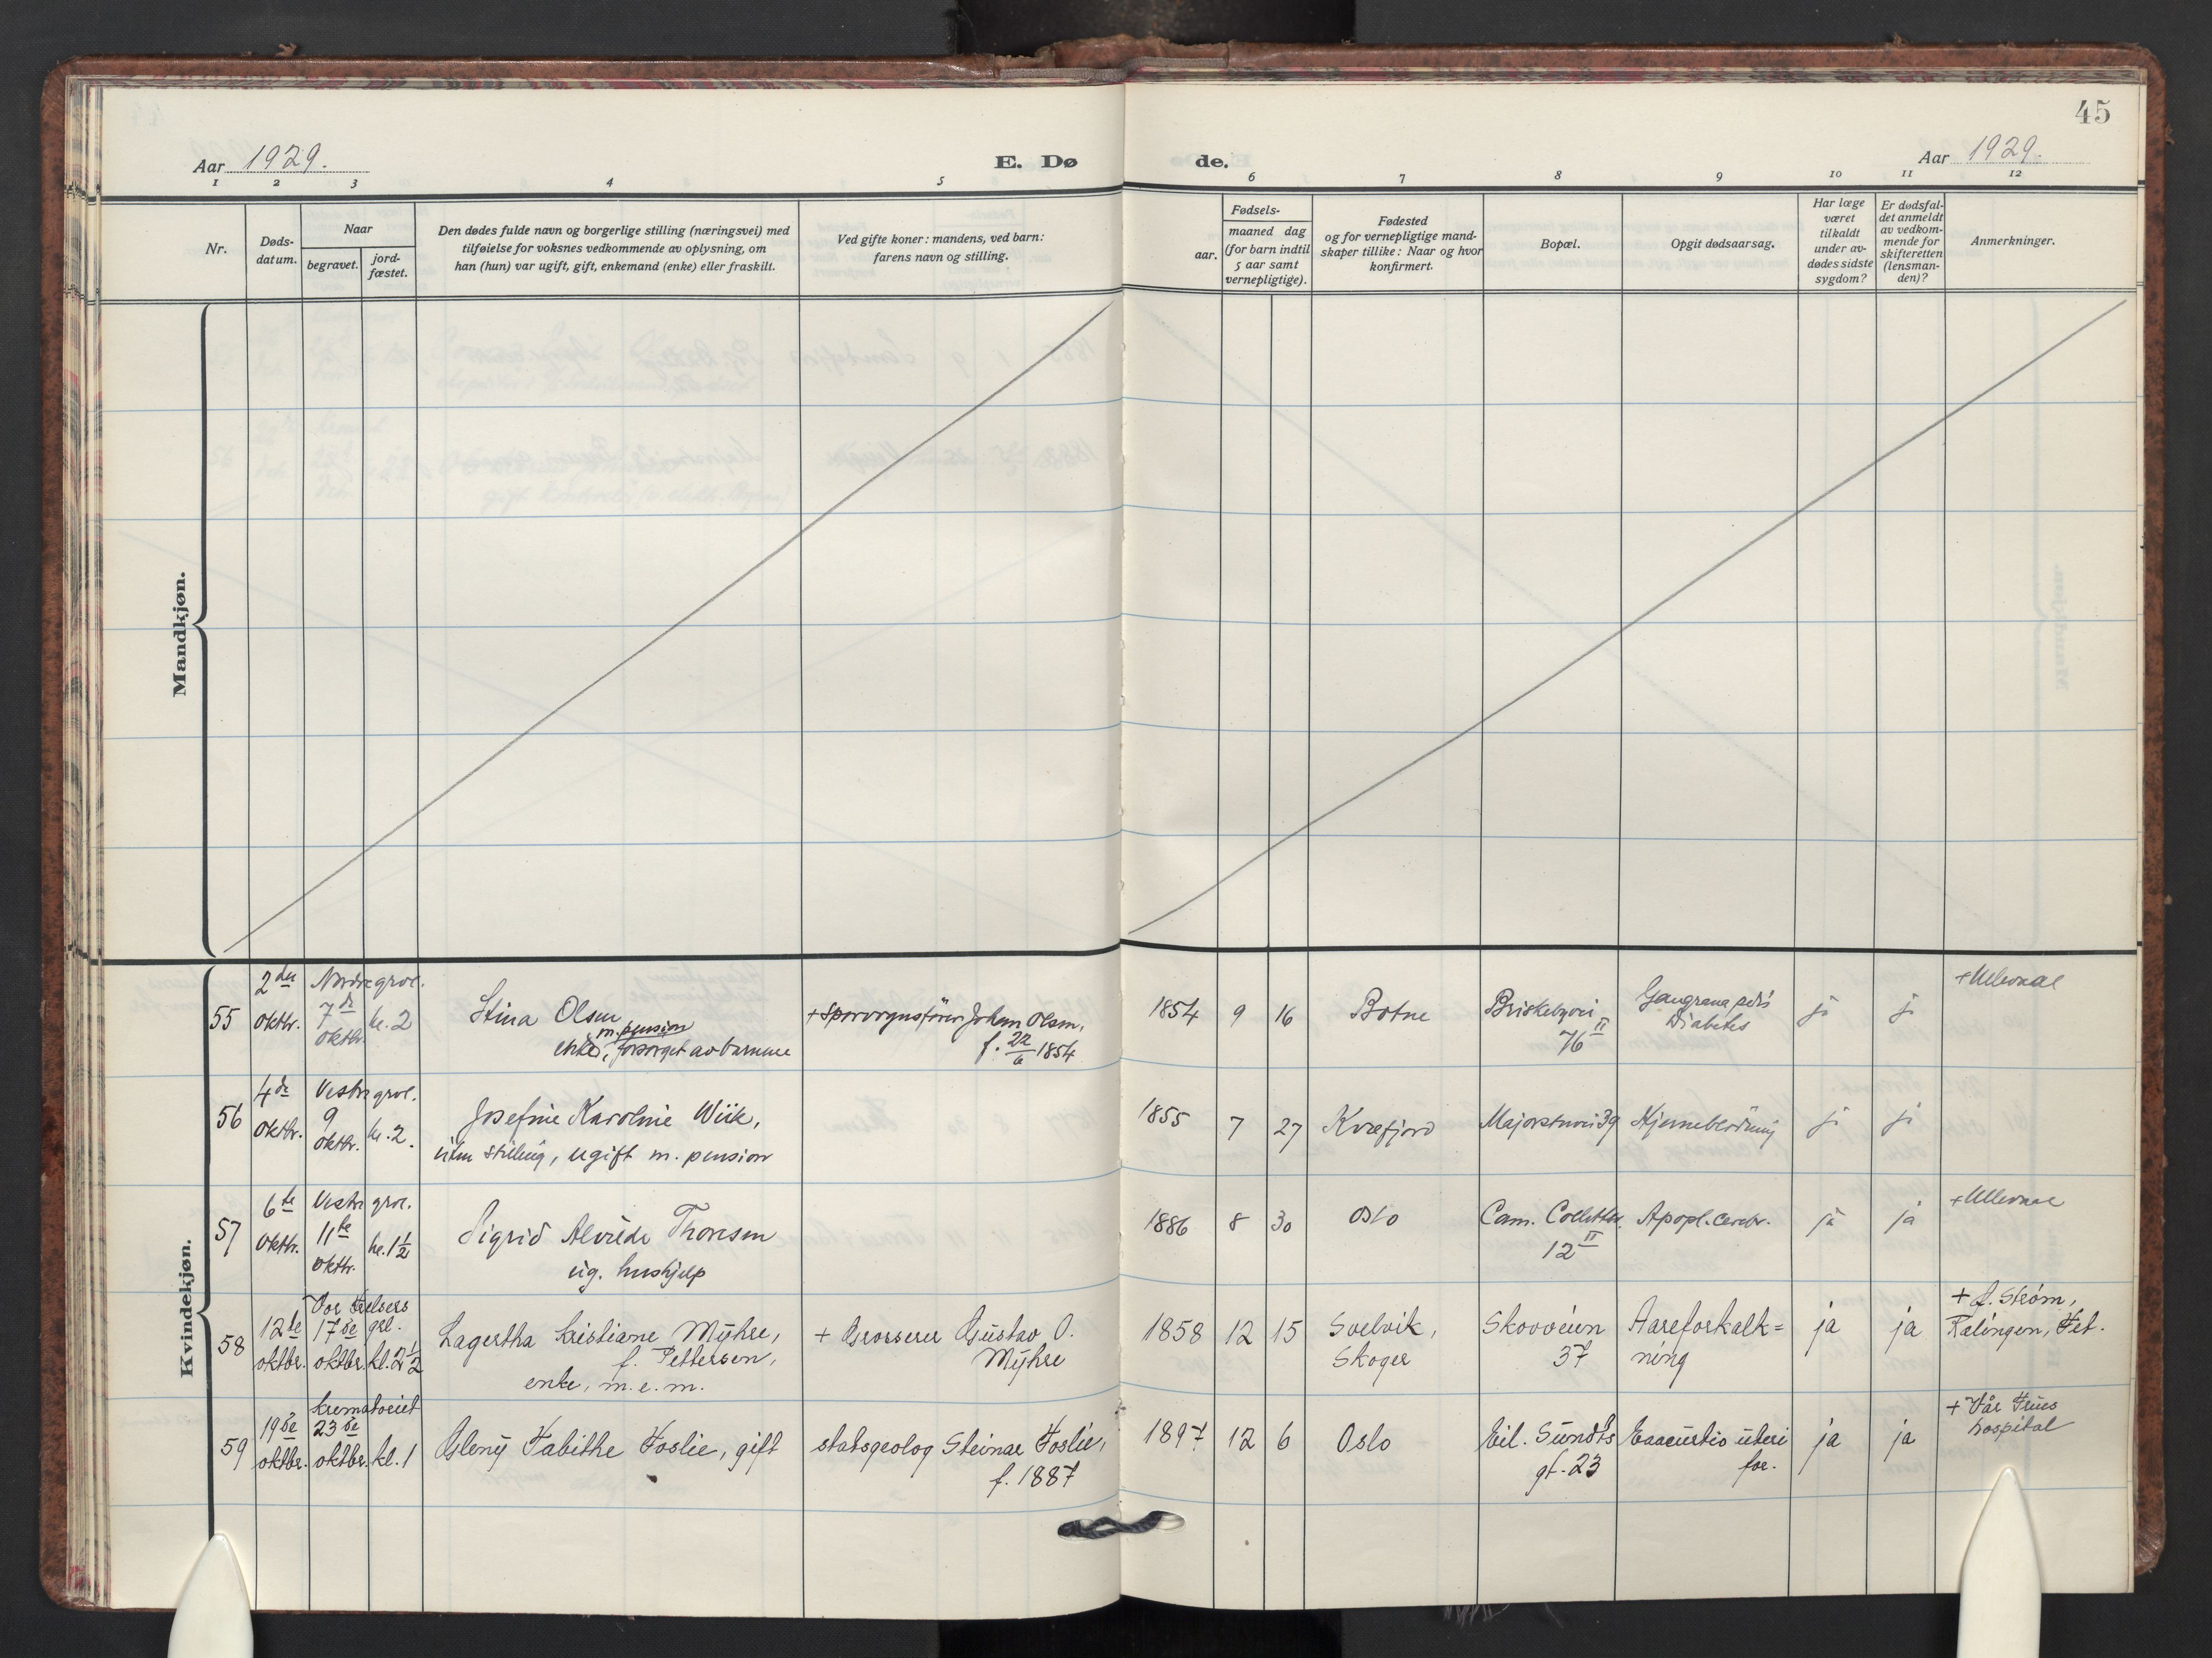 45
Aar 1929.
E. Dø
de.
Aar 1929.
1 2 3 4 5 6 7 8 9 10 11 12
Nr.
Døds-
datum.
Naar
begravet.
jord-
fæstet.
Den dødes fulde navn og borgerlige stilling (næringsvei) med
tilføielse for voksnes vedkommende av oplysning, om
han (hun) var ugift, gift, enkemand (enke) eller fraskilt.
Ved gifte koner: mandens, ved barn:
farens navn og stilling.
Fødsels-
aar.
maaned dag
(for barn indtil
5 aar samt
vernepligtige).
Fødested
og for vernepligtige mand-
skaper tillike: Naar og hvor
konfirmert.
Bopæl.
Opgit dødsaarsag.
Har læge
været
tilkaldt
under av-
dødes sidste
sygdom?
Er dødsfal-
det anmeldt
av vedkom-
mende for
skifteretten
(lensman-
den)?
Anmerkninger.
Mandkjøn.
Kvindekjøn.
55
2den
oktbr.
Nordre grvl.
7de
oktbr.
kl. 2
Stina Olsen
m. pension
enke, forsørget av barnene
+ Sporvognsfører Johan Olsen,
f. 22/6 1854
1854 9 16
Botne
Briskebyvei
76 II
Gangræna pedis
Diabetes
ja
ja
+ Ullevaal
56
4de
oktbr.
Vestre grvl.
9
oktbr.
kl. 2.
Josefine Karoline Wiik,
uten stilling, ugift m. pension
1855 7 27
Kvæfjord
Majorstuvei 39
Hjerneblødning
ja
ja
57
6te
oktbr.
Vestre grvl.
11te
oktbr.
kl. 1½
Sigrid Alvilde Thoresen
ug. hushjelp
1886 8 30
Oslo
Cam. Collettsv.
12 II
Apopl. cerebr.
ja
ja
+ Ullevaal
58
12te
oktbr.
Vor Frelsers
17de grl.
oktbr. kl. 2½
Lagertha Kristiane Myhre,
f. Pettersen,
enke, m. e. m.
+ Grosserer Gustav O.
Myhre
1858 12 15
Svelvik,
Skoger
Skovveien
37
Aareforkalk=
ning
ja
ja
+ A. Strøm,
Rælingen, Fet.
59
19de
oktbr.
Krematoriet
23de
oktbr. kl. 1
Gleny Tabithe Foslie, gift
statsgeolog Steinar Foslie,
f. 1887
1897 12 6
Oslo
Eil. Sundts
gt. 23
uteri
ja
ja
+ Vår Frues
hospital